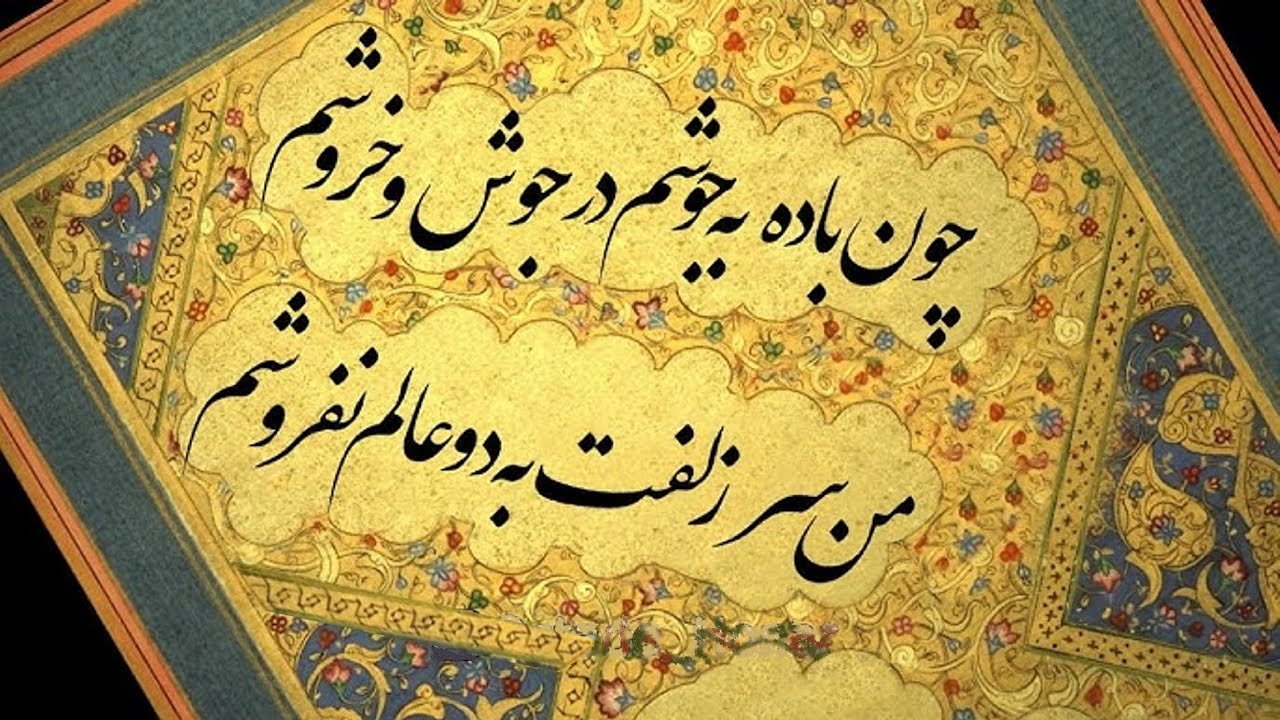 چون باده به جوشم در جوش و خروشم
من سر زلفت به دو عالم نفروشم